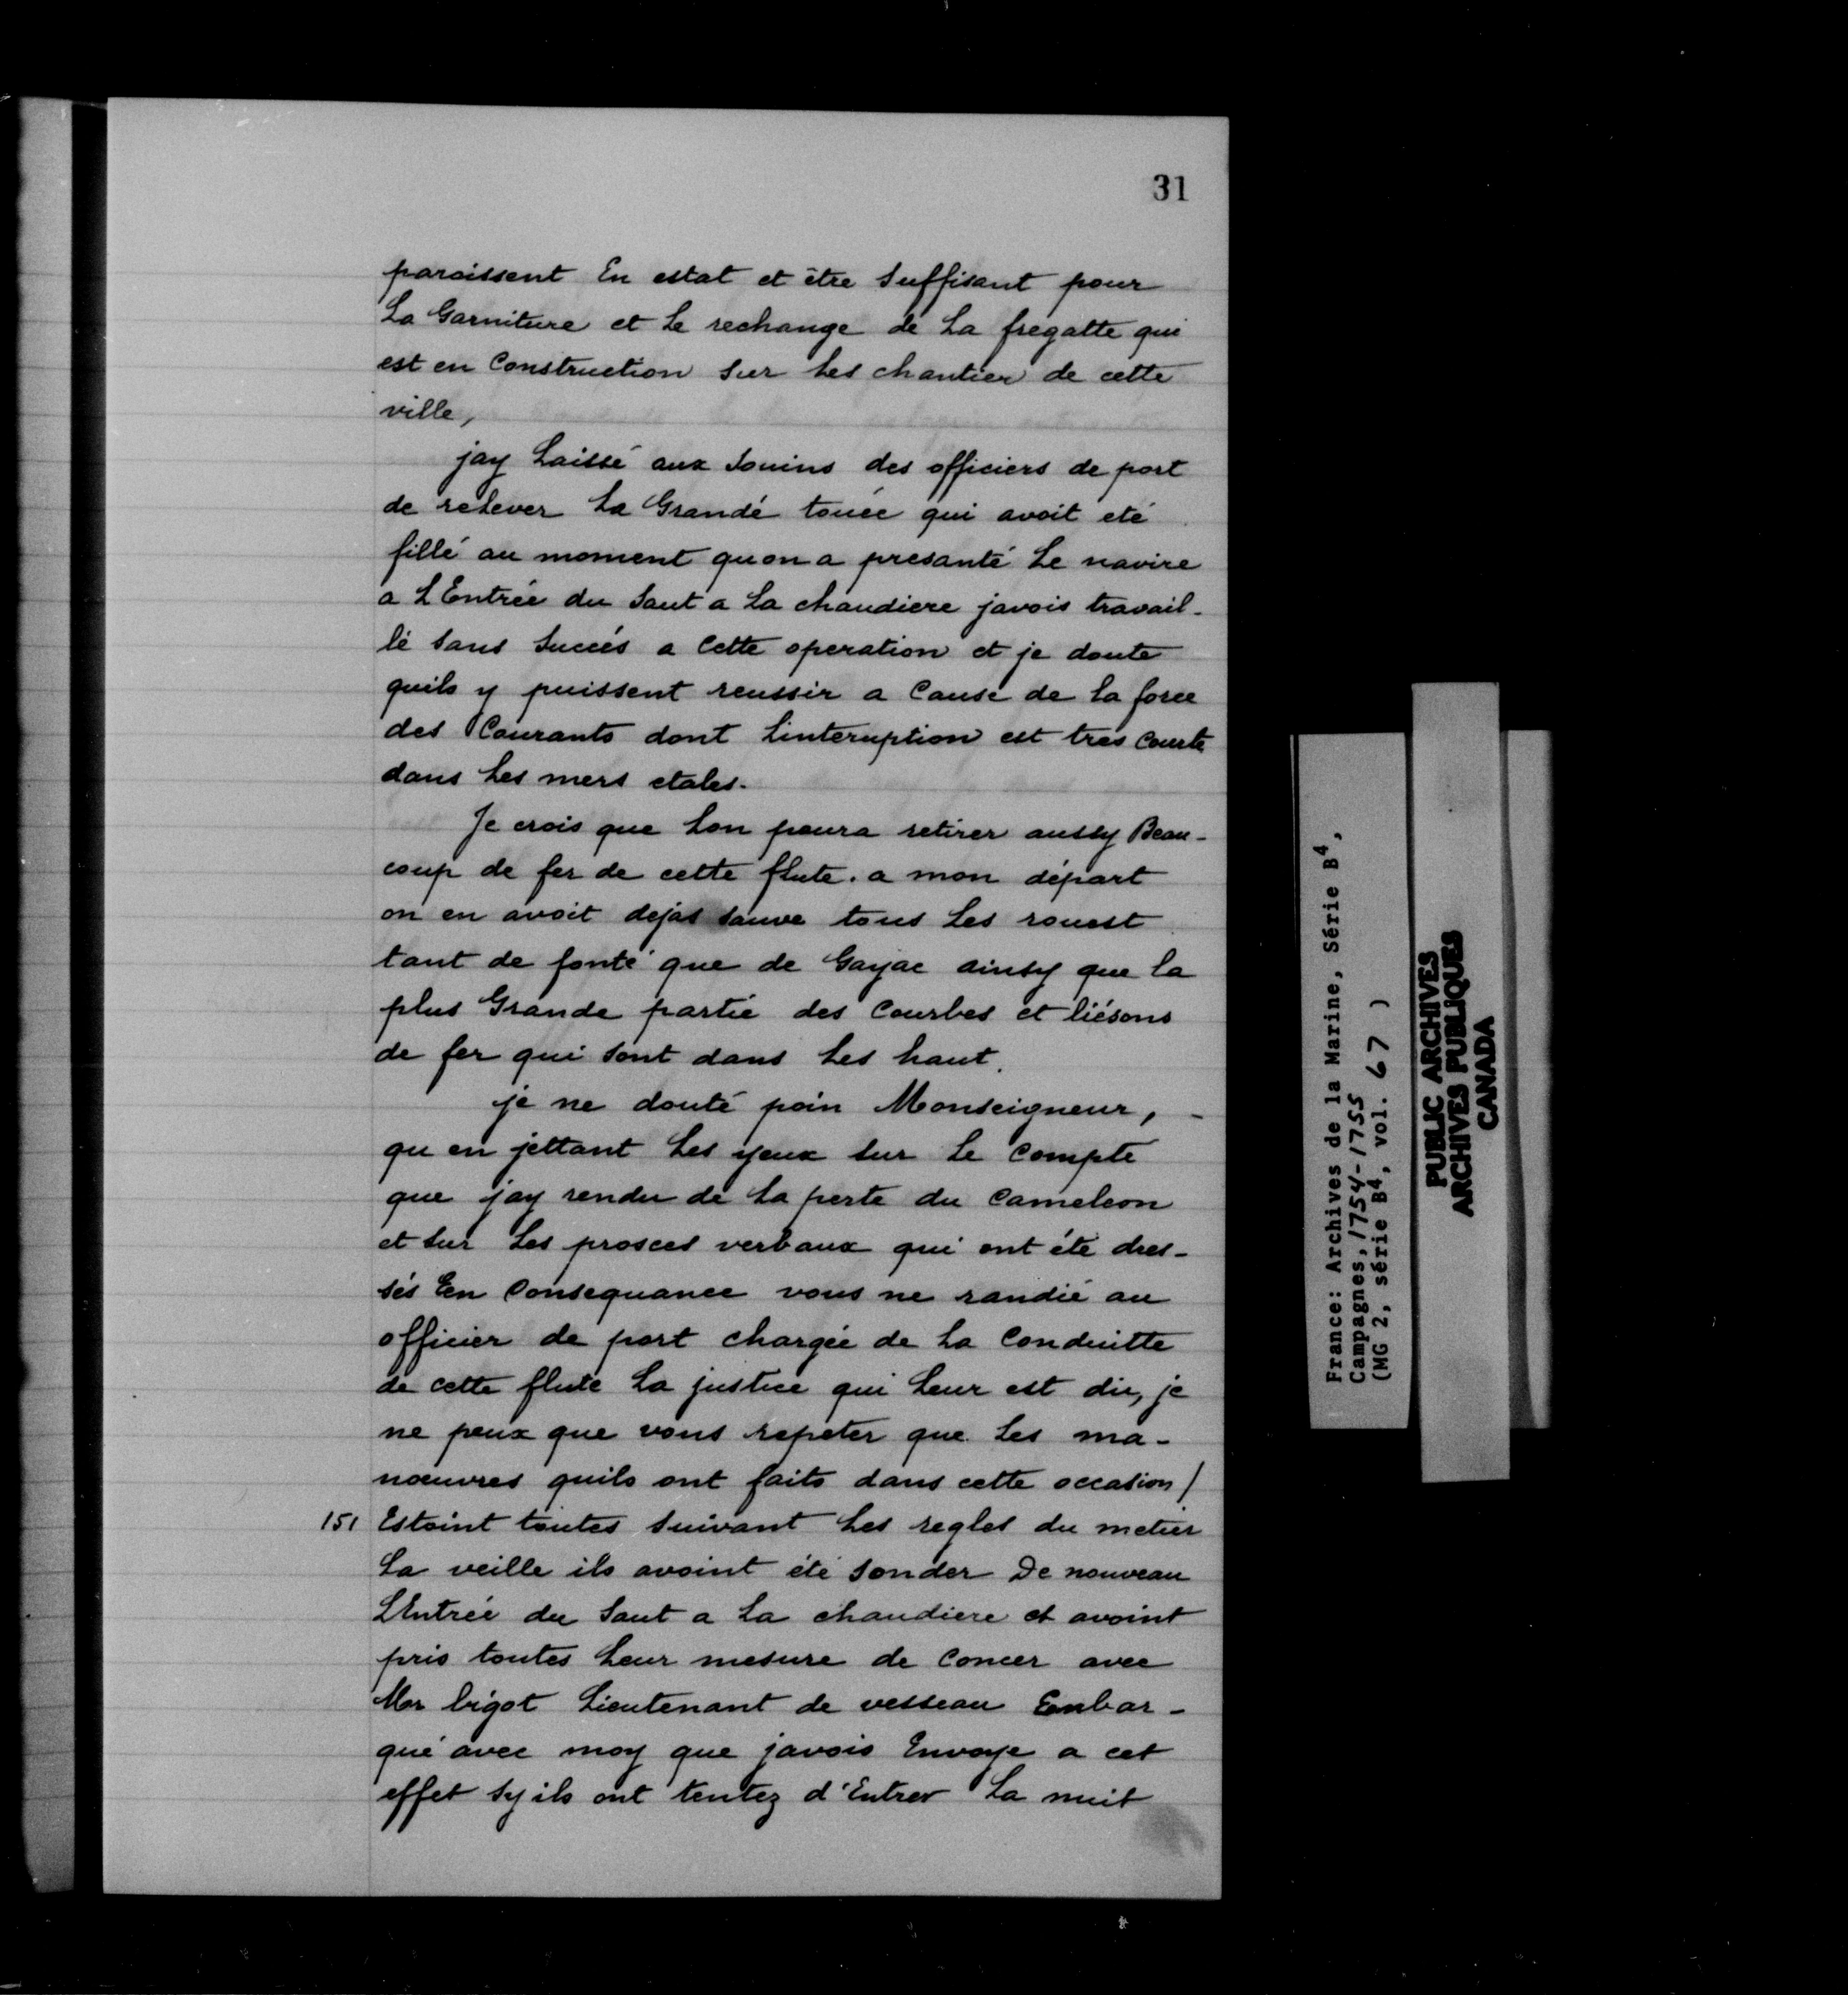 31
paroissent En estat et être Suffisant pour
La Garniture et Le rechange de La fregatte qui
est en Construction Sur Les chantier de cette
ville,
jay Laissé aux Souins des officiers de port
de relever La Grandé touée qui avoit eté
fillé au moment quon a presanté Le navire
a L'Entrée du Saut a La chaudiere javois travail-
lé Sans Succés a Cette operation et je doute
quils y puissent reussir a Cause de la force
des Courants dont Linteruption est tres Courte
dans Les mers etales.
Je crois que Lon poura retirer aussy Beau-
coup de fer de cette flute. a mon départ
on en avoit dejas Sauve tous Les rouest
tant de fonté que de Gayac ainsy que la
plus Grande partie des Courbes et liésons
de fer qui Sont dans Les haut.
je ne douté poin Monseigneur, -
qu en jettant Les yeux Sur Le Compte
que jay rendu de La perte du Cameleon
et Sur Les prosces verbaux qui ont été dres-
sés En Consequance vous ne randié au
officier de port chargée de La Conduitte
de cette flute La justice qui Leur est du, je
ne peux que vous repeter que Les ma-
nœuvres quils ont faits dans cette occasion /
151 Estoint toutes Suivant Les regles du metier
La veille ils avoint été Sonder De nouveau
L'Entrée du Saut a La chaudiere et avoint
pris toutes Leur mesure de Concer avec
Mor bigot Lieutenant de vesseau Enbar-
qué avec moy que javois Envoye a cet
effet Sy ils ont tentez d'Entrer La nuit
France: Archives de la Marine, Série B4,
Campagnes, 1754-1755
(MG 2, série B4, vol. 67 )
PUBLIC ARCHIVES
ARCHIVES PUBLIQUES
CANADA